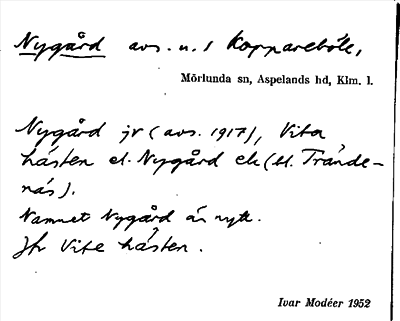 Nygård avs. u. 1 Kopparebole,
Mörlunda sn, Aspelands hd, Klm. l.
Nygård jr (avs. 1917), Vita
hästen el. Nygård ek (bl. Trände-
näs).
Namnet Nygård är nytt.
Jfr Vite hästen.
Ivar Modéer 1952